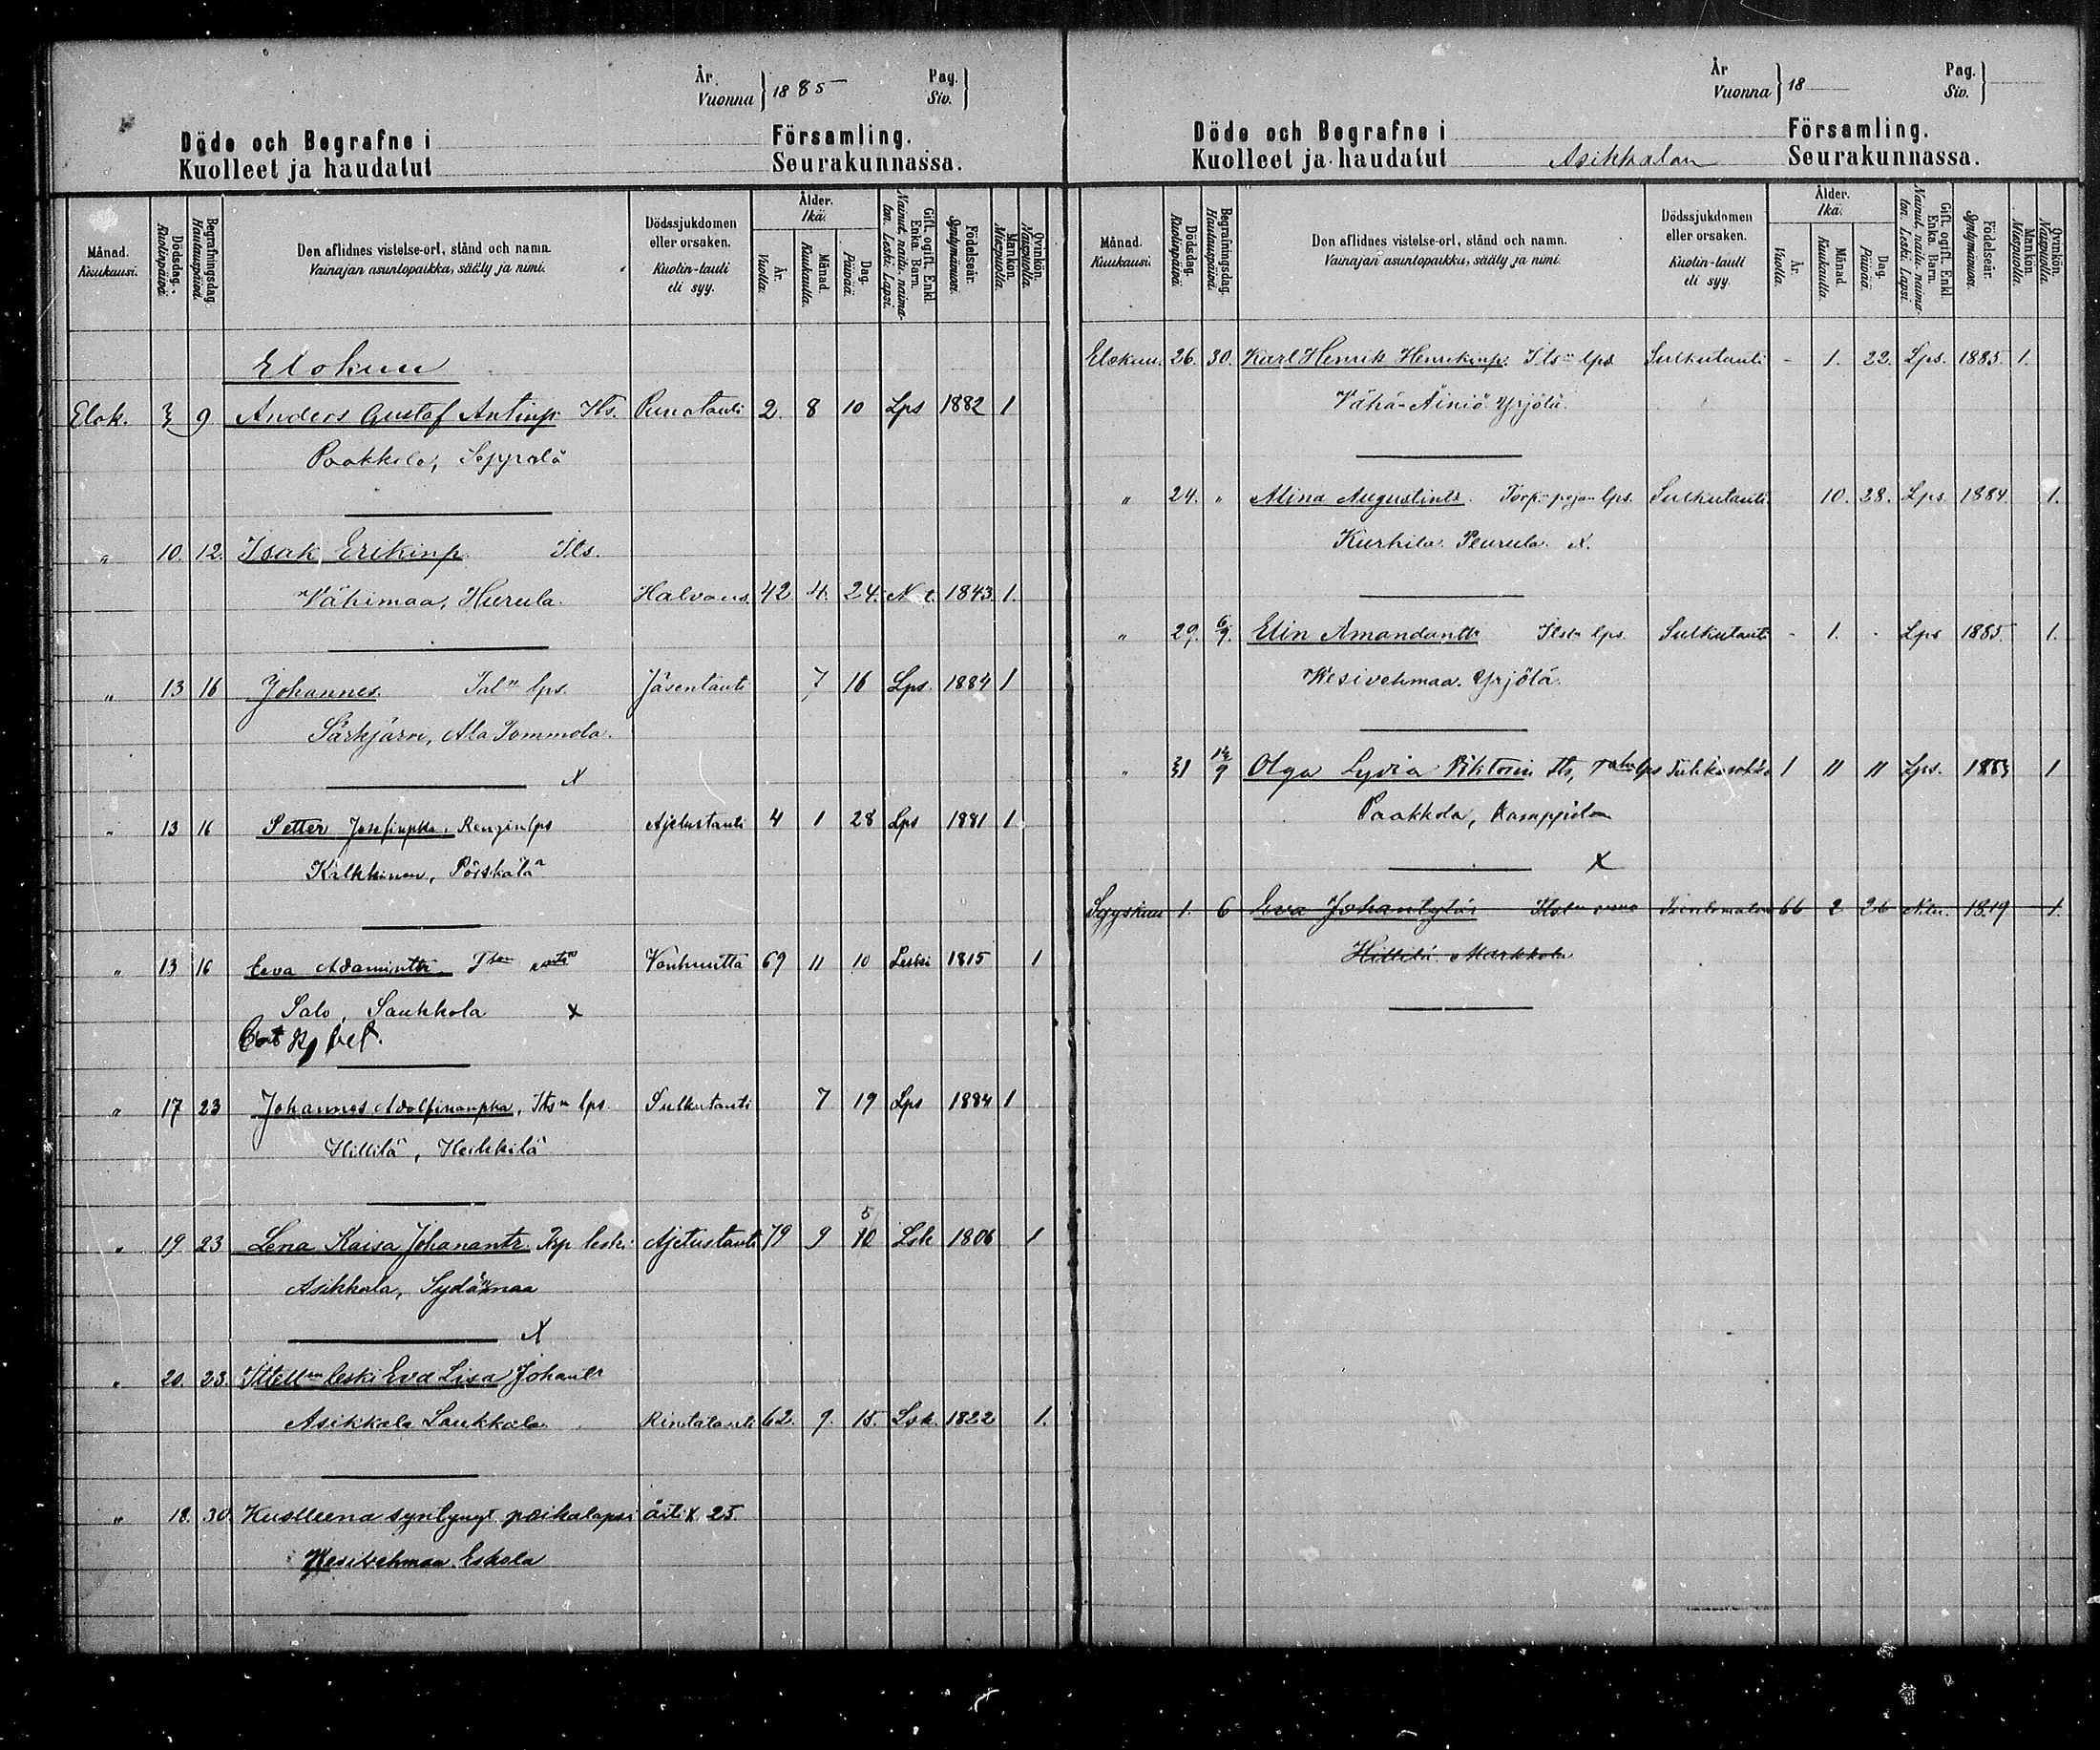 År
Vuonna } 1885
Pag.
Siv. }
Döde och Begrafne i Församling.
Kuolleet ja haudatut Seurakunnassa.
Månad. Kuukausi.
Dödsdag. Kuolinpäivä.
Begrafningsdag. Hautauspäivä.
Den aflidnes vistelse-ort, stånd och namn.
Vainajan asuntopaikka, sääty ja nimi.
Dödssjukdomen eller orsaken.
Kuolin-tauti eli syy.
Ålder. Ikä.
År. Vuotta.
Månad. Kuukautta.
Dag. Päivää.
Gift, ogift. Enkl. Enka. Barn.
Nainut, naitu, naimaton. Leski. Lapsi.
Födelseår. Syntymävuosi.
Mankön. Miespuolia.
Qvinkön. Naispuolia.
Elokuu
Elok. 3 9 Anders Gustaf Antinp. Its. Punatauti 2 8 10 Lps 1882 1
Paakkola, Seppälä
" 10. 12. Isak Erikinp. Its.
Vähimaa, Hurula. Halvaus. 42 4. 24. N. t. 1843. 1.
" 13 16 Johannes. Tal:n lps. Jäsentauti 7 16 Lps. 1884 1
Särkjärvi, Ala Tommola.
x
" 13 16 Petter Josefinpka. Rengin lps Ajetustauti 4 1 28 Lps 1881 1
Kalkkinen, Pörskälä
" 13 16 Eeva Adamintr. Vanhuutta 69 11 10 Leski 1815 1
Salo, Saukkola x
" 17 23 Johannes Adolfinanpka, Its:n lps. Sulkutauti 7 19 Lps 1884 1
Hillilä, Heikkilä
5
" 19 23 Lena Kaisa Johanantr. leski Ajetustauti 79 9 10 Lsk 1806 1
Asikkala, Sydänmaa
x
" 20. 23. Ittell:en leski Eva Lisa Johantr
Asikkala Laukkala Rintatauti 62. 9. 15. Lsk. 1822 1.
" 18. 30. Kuolleena syntynyt poikalapsi äiti x 25.
Wesivehmaa Eskola
År
Vuonna } 18
Pag.
Siv. }
Döde och Begrafne i Församling.
Kuolleet ja haudatut Asikkalan Seurakunnassa.
Månad. Kuukausi.
Dödsdag. Kuolinpäivä.
Begrafningsdag. Hautauspäivä.
Den aflidnes vistelse-ort, stånd och namn.
Vainajan asuntopaikka, sääty ja nimi.
Dödssjukdomen eller orsaken.
Kuolin-tauti eli syy.
Ålder. Ikä.
År. Vuotta.
Månad. Kuukautta.
Dag. Päivää.
Gift, ogift. Enkl. Enka. Barn.
Nainut, naitu, naimaton. Leski. Lapsi.
Födelseår. Syntymävuosi.
Mankön. Miespuolia.
Qvinkön. Naispuolia.
Elokuu. 26. 30. Karl Henrik Henrikinp. Its:n lps Sulkutauti - 1. 22. Lps. 1885. 1.
Vähä-Äiniö Yrjölä.
" 24. " Alina Augustintr. Torp:n pojan lps. Sulkutauti 10. 28. Lps. 1884. 1.
Kurhila Peurula. x.
" 29. 6/9. Elin Amandantr Its:n lps. Sulkutauti - 1. - Lps 1885. 1.
Wesivehmaa. Yrjölä.
" 31 13/9 Olga Lydia Viktorin lps Tuhkarokko 1 11 11 Lps. 1883 1
Paakkola, Kamppila
x
Syyskuu 1. 6 Eva Johantytär 66 2 26 1819 1.
Hillilä Markkola